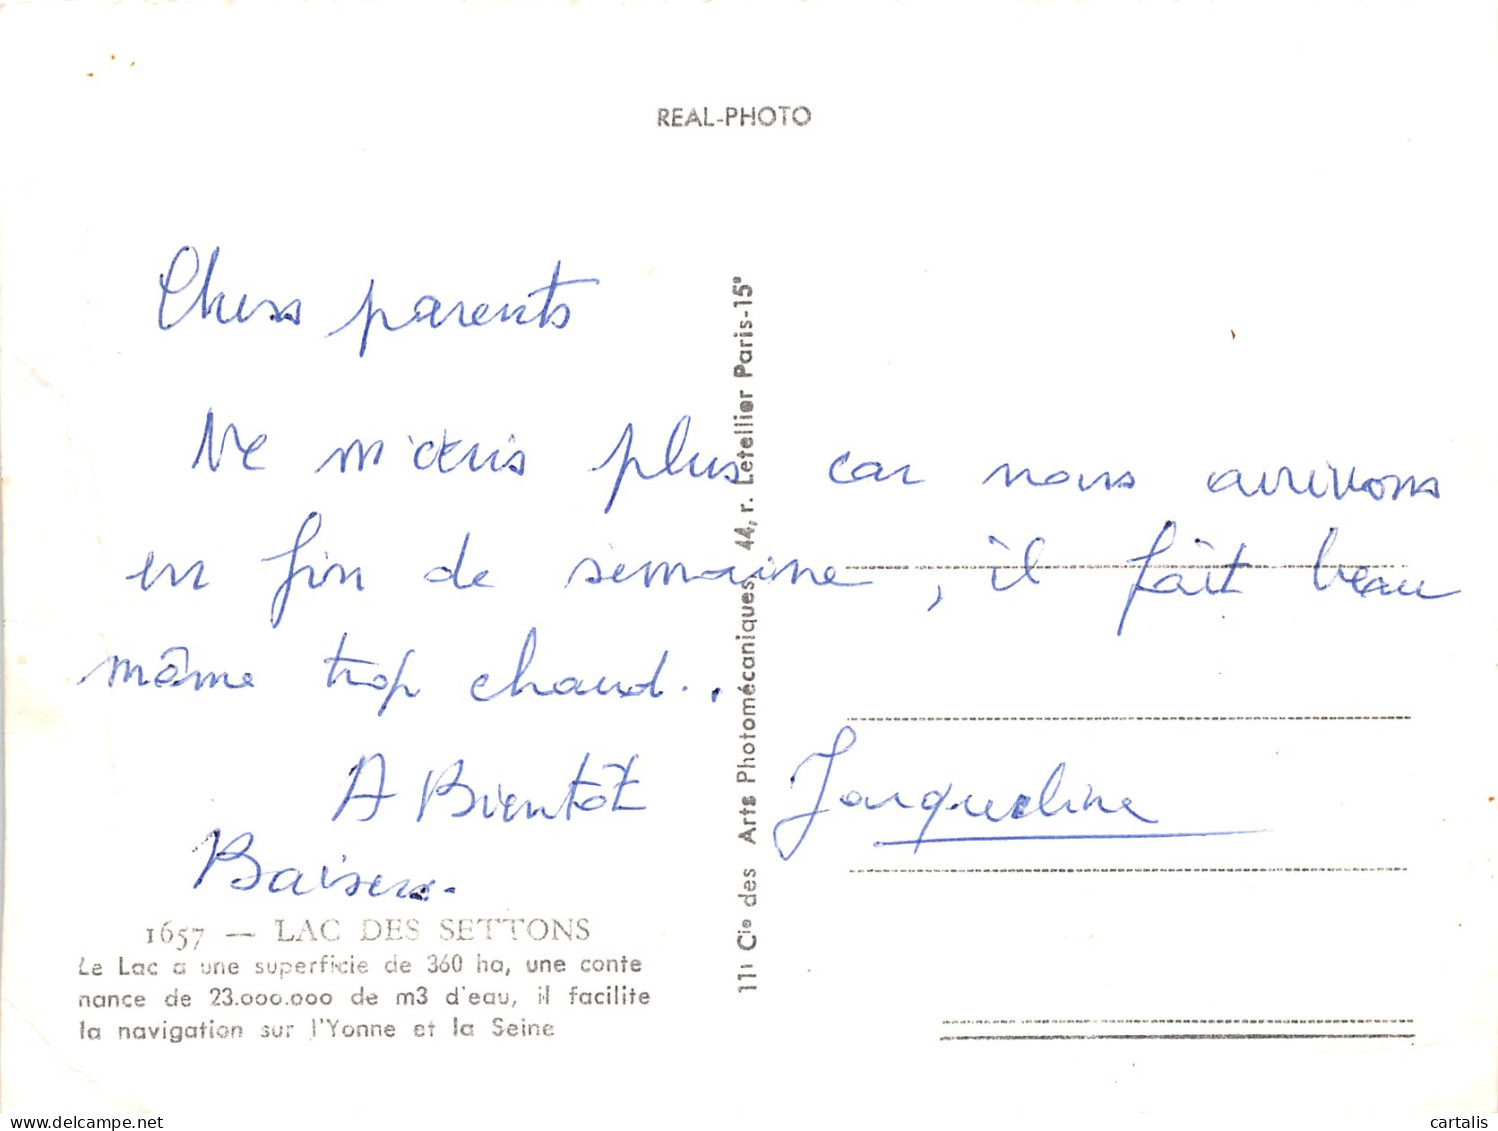 REAL-PHOTO
Chers parents
Ne m'écris plus car nous arrivons
en fin de semaine, il fait beau
même trop chaud..
A Bientôt Jacqueline
Baisers.
1657 — LAC DES SETTONS
Le Lac a une superficie de 360 ha, une conte
nance de 23.000.000 de m3 d'eau, il facilite
la navigation sur l'Yonne et la Seine
111 Cie des Arts Photomécaniques, 44, r. Letellier Paris-15e
www.delcampe.net
cartalis